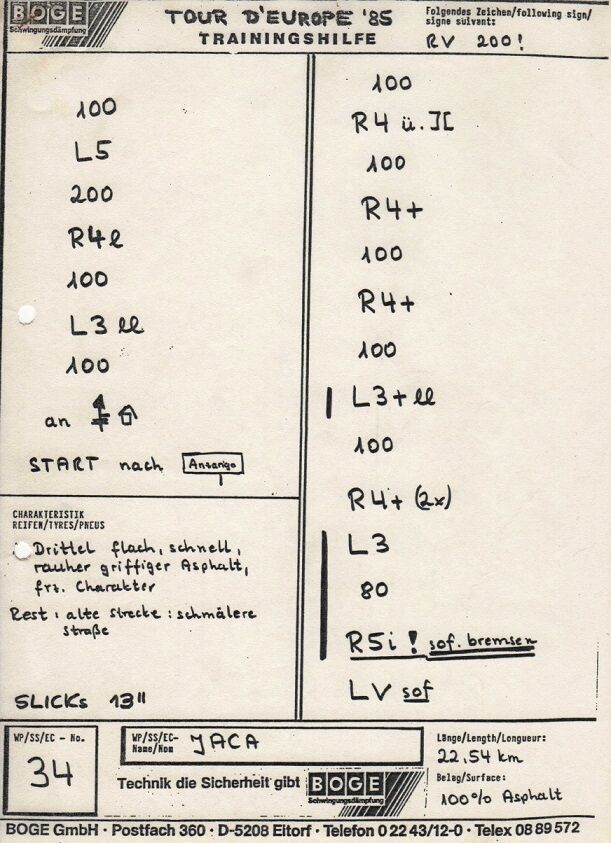 BOGE
Schwingungsdämpfung
TOUR D'EUROPE '85
TRAININGSHILFE
Folgendes Zeichen/following sign/
signe suivant:
RV 200!
100
L5
200
R4l
100
L3 ll
100
an
START nach Ansanso
CHARAKTERISTIK
REIFEN/TYRES/PNEUS
Drittel flach, schnell,
rauher griffiger Asphalt,
frz. Charakter
Rest: alte Strecke: schmälere
Straße
SLICKs 13"
100
R4 ü. ][
100
R4+
100
R4+
100
L3+ ll
100
R4+ (2x)
L3
80
R5i ! sof. bremsen
LV sof
WP/SS/EC - No.
34
WP/SS/EC-
Name/Nom
JACA
Technik die Sicherheit gibt
BOGE
Schwingungsdämpfung
Länge/Length/Longueur:
22,54 km
Belag/Surface:
100% Asphalt
BOGE GmbH · Postfach 360 · D-5208 Eitorf · Telefon 0 22 43/12-0 · Telex 08 89 572